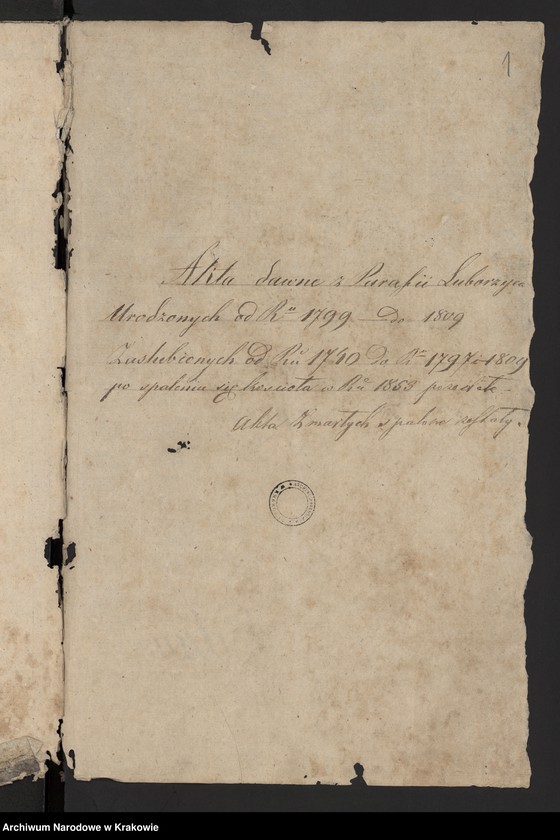 1
Akta dawne z Parafii Luborzyca
Urodzonych od Ru 1799 Do 1809
Zaslubionych od Ru 1740 do Ru 1797 i 1809
po spaleniu się kosciola w Ru 1858
Akta Zmarłych spalone zostały.
Archiwum Narodowe w Krakowie